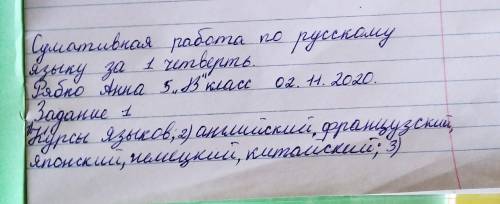 Сумативная работа по русскому
языку за 1 четверть.
Рябко Анна 5 „В" класс 02.11.2020.
Задание 1
1) Курсы языков, 2) английский, французский,
японский, немецкий, китайский; 3)